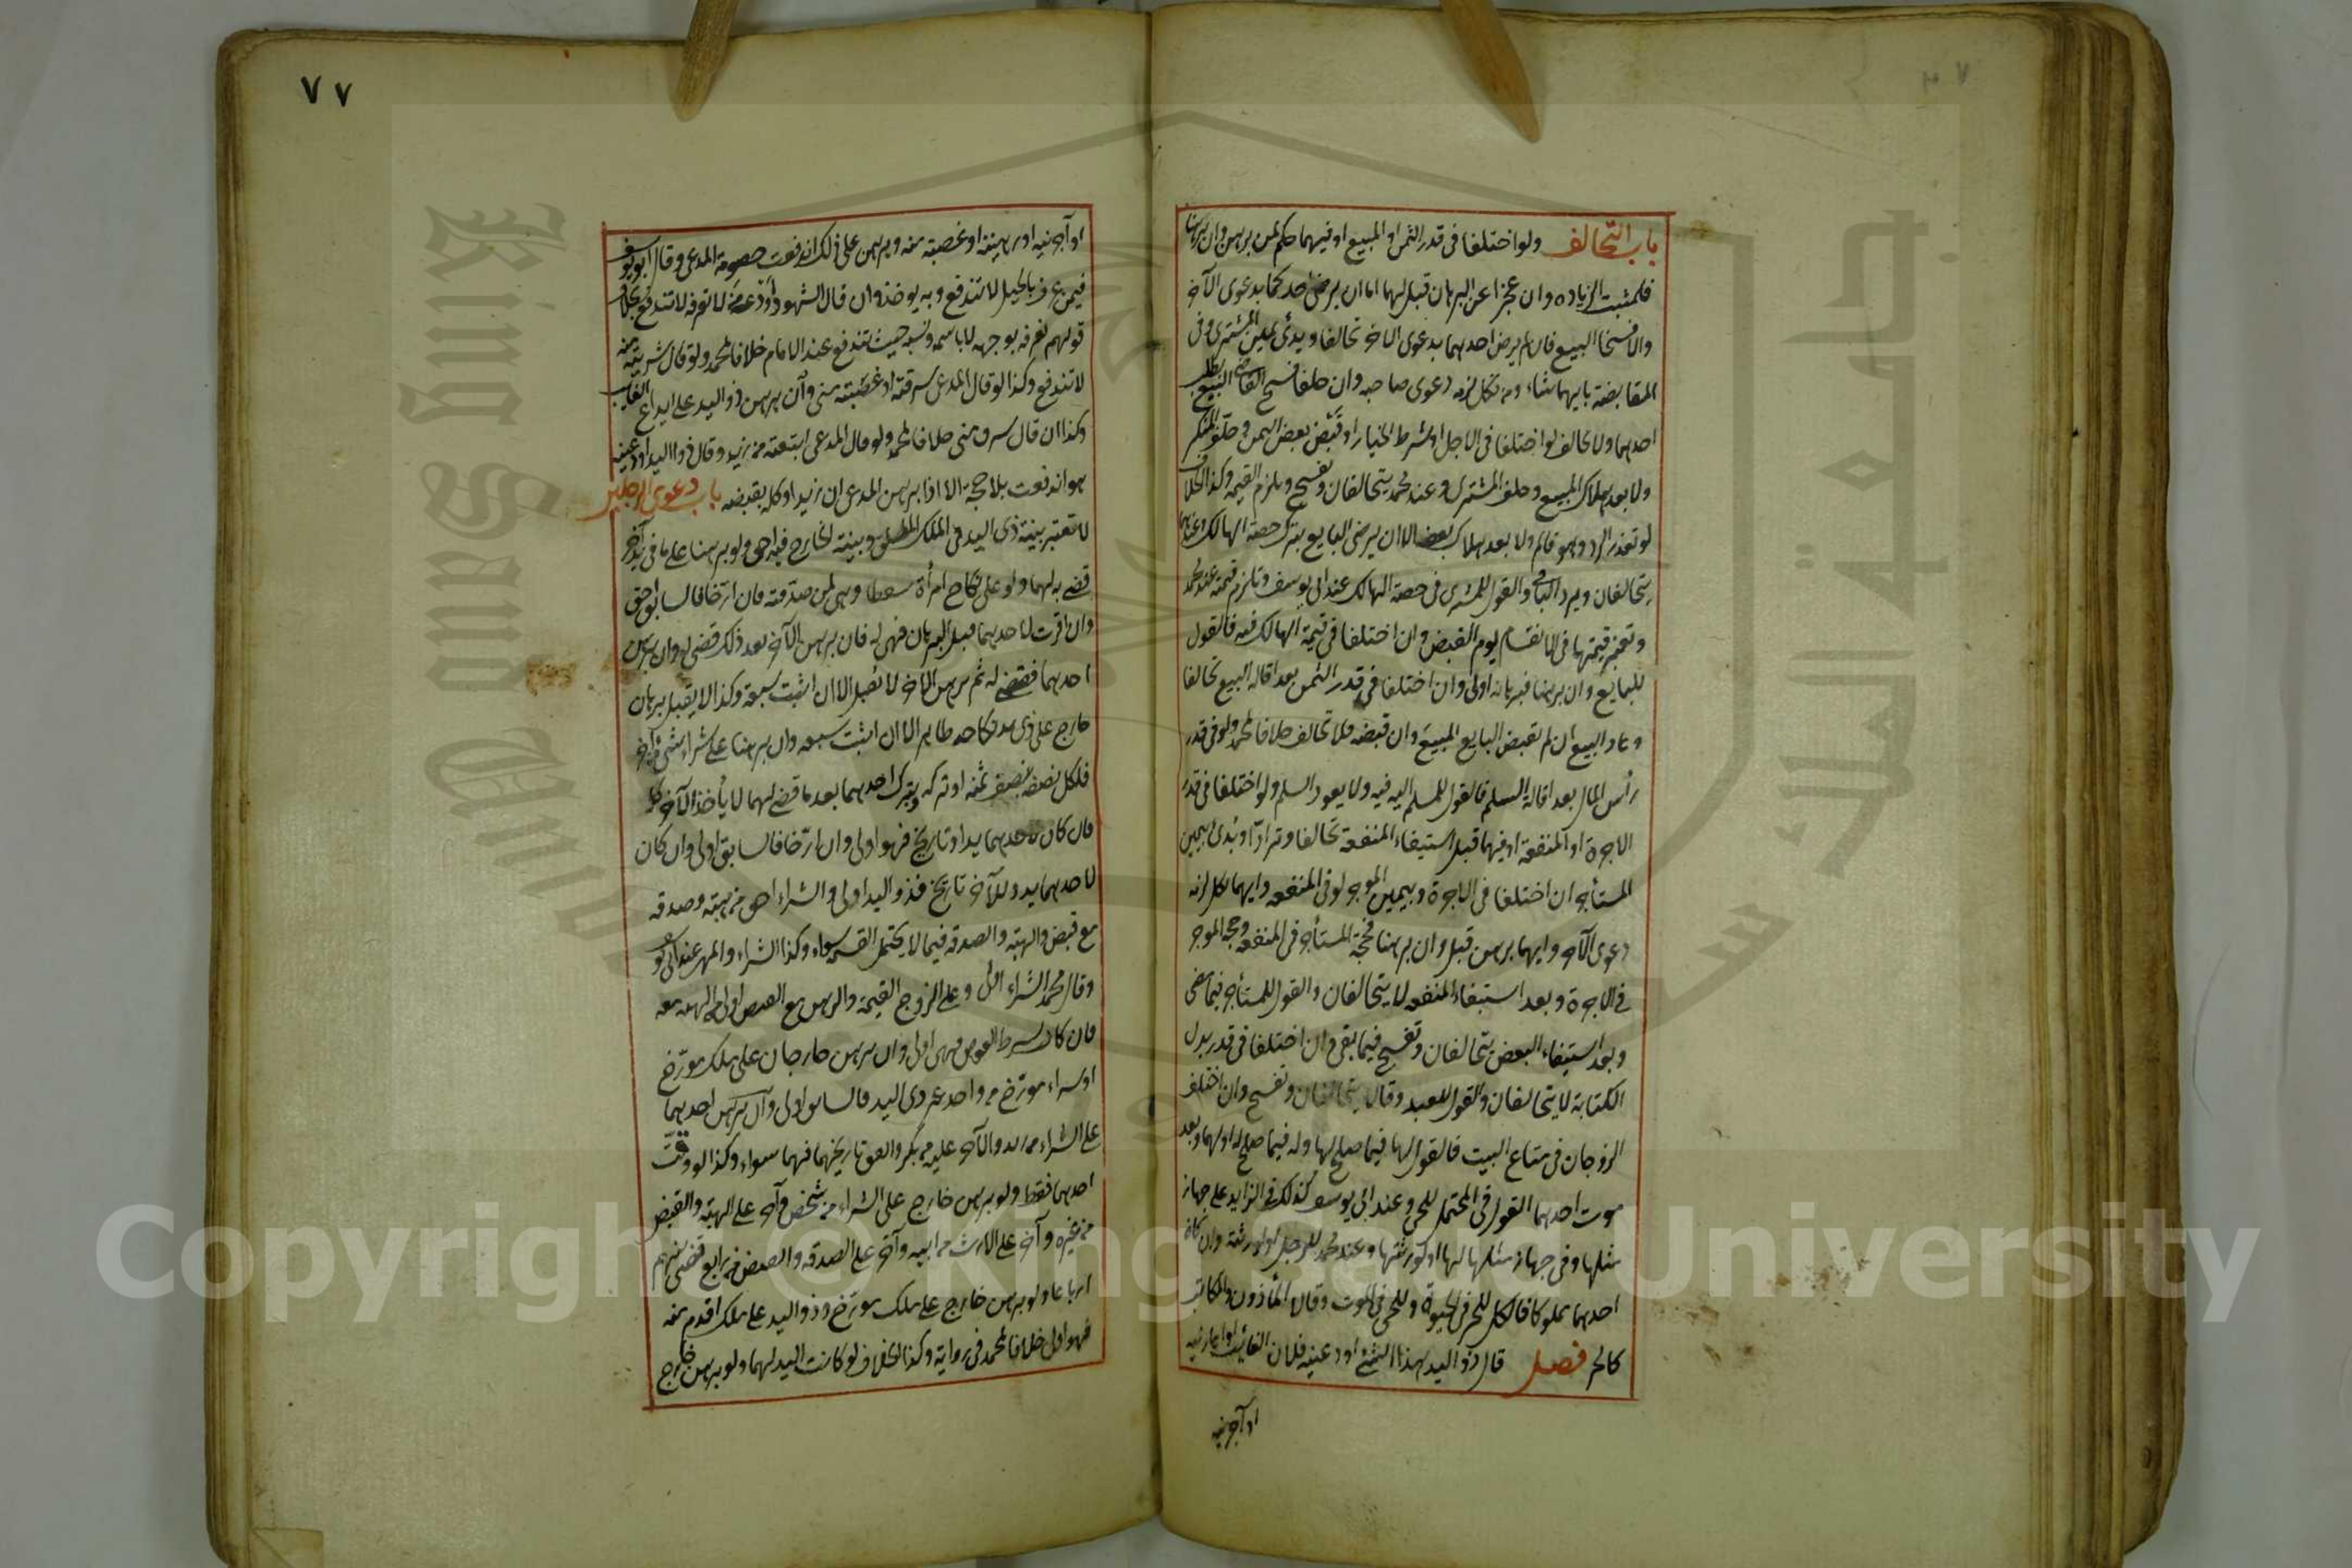 باب التحالف ولو اختلفا في قدر الثمن او المبيع او فيهما حكم لمن برهن وان برهنا
فلمثبت الزيادة وان عجزا عن البرهان قيل لهما اما ان يرضى احدكما بدعوى الآخر
والا فسخنا البيع فان لم يرض احدهما بدعوى الآخر تحالفا وبدئ بيمين المشتري وفي
المقايضة بايهما شاء ومن نكل لزمه دعوى صاحبه وان حلفا فسخ القاضي البيع بطلب
احدهما ولا تحالف لو اختلفا في الاجل او شرط الخيار او قبض بعض الثمن وحلف المنكر
ولا بعد هلاك المبيع وحلف المشتري وعند محمد يتحالفان ويفسخ ويلزم القيمة وكذا الخلاف
لو تعذر الرد وهو قائم ولا بعد هلاك بعضه الا ان يرضى البايع بترك حصة الهالك وعندهما
يتحالفان ويرد الباقي والقول للمشتري في حصة الهالك عند ابي يوسف وتلزم قيمته عند محمد
وتعتبر قيمتهما في الانقسام يوم القبض وان اختلفا في قيمة الهالك فيه فالقول
للبايع وان برهنا فبرهانه اولى وان اختلفا في قدر الثمن بعد اقالة البيع تحالفا
وعاد البيع ان لم يقبض البايع المبيع وان قبضه فلا تحالف خلافا لمحمد ولو في قدر
رأس المال بعد اقالة السلم فالقول للمسلم اليه فيه ولا يعود السلم ولو اختلفا في قدر
الاجرة او المنفعة او فيهما قبل استيفاء المنفعة تحالفا وترادا وبدئ بيمين
المستأجر ان اختلفا في الاجرة وبيمين الموجر لو في المنفعة وايهما نكل لزمه
دعوى الآخر وايهما برهن قبل وان برهنا فحجة المستأجر في المنفعة وحجة الموجر
في الاجرة وبعد استيفاء المنفعة لا يتحالفان والقول للمستأجر فيما مضى
وبعد استيفاء البعض يتحالفان وتفسخ فيما بقي وان اختلفا في قدر بدل
الكتابة لا يتحالفان والقول للعبد وقالا يتحالفان وتفسخ وان اختلف
الزوجان في متاع البيت فالقول لها فيما صلح لها وله فيما صلح له او لهما وبعد
موت احدهما القول في المحتمل للحي وعند ابي يوسف كذلك في الزايد على جهاز
مثلها وفي جهاز مثلها لها او لورثتها وعند محمد للرجل او لورثته وان كان
احدهما مملوكا فالكل للحر في الحيوة وللحي في الموت وقالا المأذون والمكاتب
كالحر فصل قال ذو اليد هذا الشئ اودعنيه فلان الغائب او اعارنيه
او آجرنيه
٧٧
او آجرنيه او رهنيته او غصبته منه وبرهن على ذلك اندفعت خصومة المدعي وقال ابو يوسف
فيمن عرف بالحيل لا تندفع وبه يؤخذ وان قال الشهود اودعه من لا نعرفه لا تندفع بخلاف
قولهم نعرفه بوجهه لا باسمه ونسبه حيث تندفع عند الامام خلافا لمحمد ولو قال شريته منه
لا تندفع وكذا لو قال المدعي سرقته او غصبته مني وان برهن ذو اليد على ايداع الغايب
وكذا ان قال سرق مني خلافا لمحمد ولو قال المدعي ابتعته من زيد وقال ذو اليد اودعنيه
هو اندفعت بلا حجة الا اذا برهن المدعي ان زيدا وكله بقبضه باب دعوى الرجلين
لا تعتبر بينة ذي اليد في الملك المطلق وبينة الخارج فيه احق ولو برهنا على ما في يد آخر
قضي به لهما ولو على نكاح امرأة سقطا وهي لمن صدقته فان ارخا فالسابق احق
وان اقرت لاحدهما قبل البرهان فهي له فان برهن الآخر بعد ذلك قضي له وان برهن
احدهما فقضي له ثم برهن الآخر لا يقبل الا ان اثبت سبقه وكذا لا يقبل برهان
خارج على ذي يد نكاحه ظاهر الا ان اثبت سبقه وان برهنا على شراء شئ من آخر
فلكل نصفه بنصف ثمنه او تركه وبترك احدهما بعد ما قضي لهما لا يأخذ الآخر كله
فان كان لاحدهما يد او تاريخ فهو اولى وان ارخا فالسابق اولى وان كان
لاحدهما يد وللآخر تاريخ فذو اليد اولى والشراء احق من هبة وصدقة
مع قبض والهبة والصدقة فيما لا يحتمل القسمة سواء وكذا الشراء والمهر عند ابي يوسف
وقال محمد الشراء اولى وعلى الزوج القيمة والرهن مع القبض اولى من الهبة معه
فان كانت بشرط العوض فهي اولى وان برهن خارجان على ملك مورخ
او شراء مورخ من واحد غير ذي اليد فالسابق اولى وان برهن احدهما
على الشراء من زيد والآخر عليه من بكر واتفق تاريخهما فهما سواء وكذا لو وقت
احدهما فقط ولو برهن خارج على الشراء من شخص وآخر على الهبة والقبض
من غيره وآخر على الارث من ابيه وآخر على الصدقة والقبض من رابع قضي بينهم
ارباعا ولو برهن خارج على ملك مورخ وذو اليد على ملك اقدم منه
فهو اولى خلافا لمحمد في رواية وكذا الخلاف لو كانت اليد لهما ولو برهن خارج
Copyright © King Saud University
King Saud University
جامعة الملك سعود